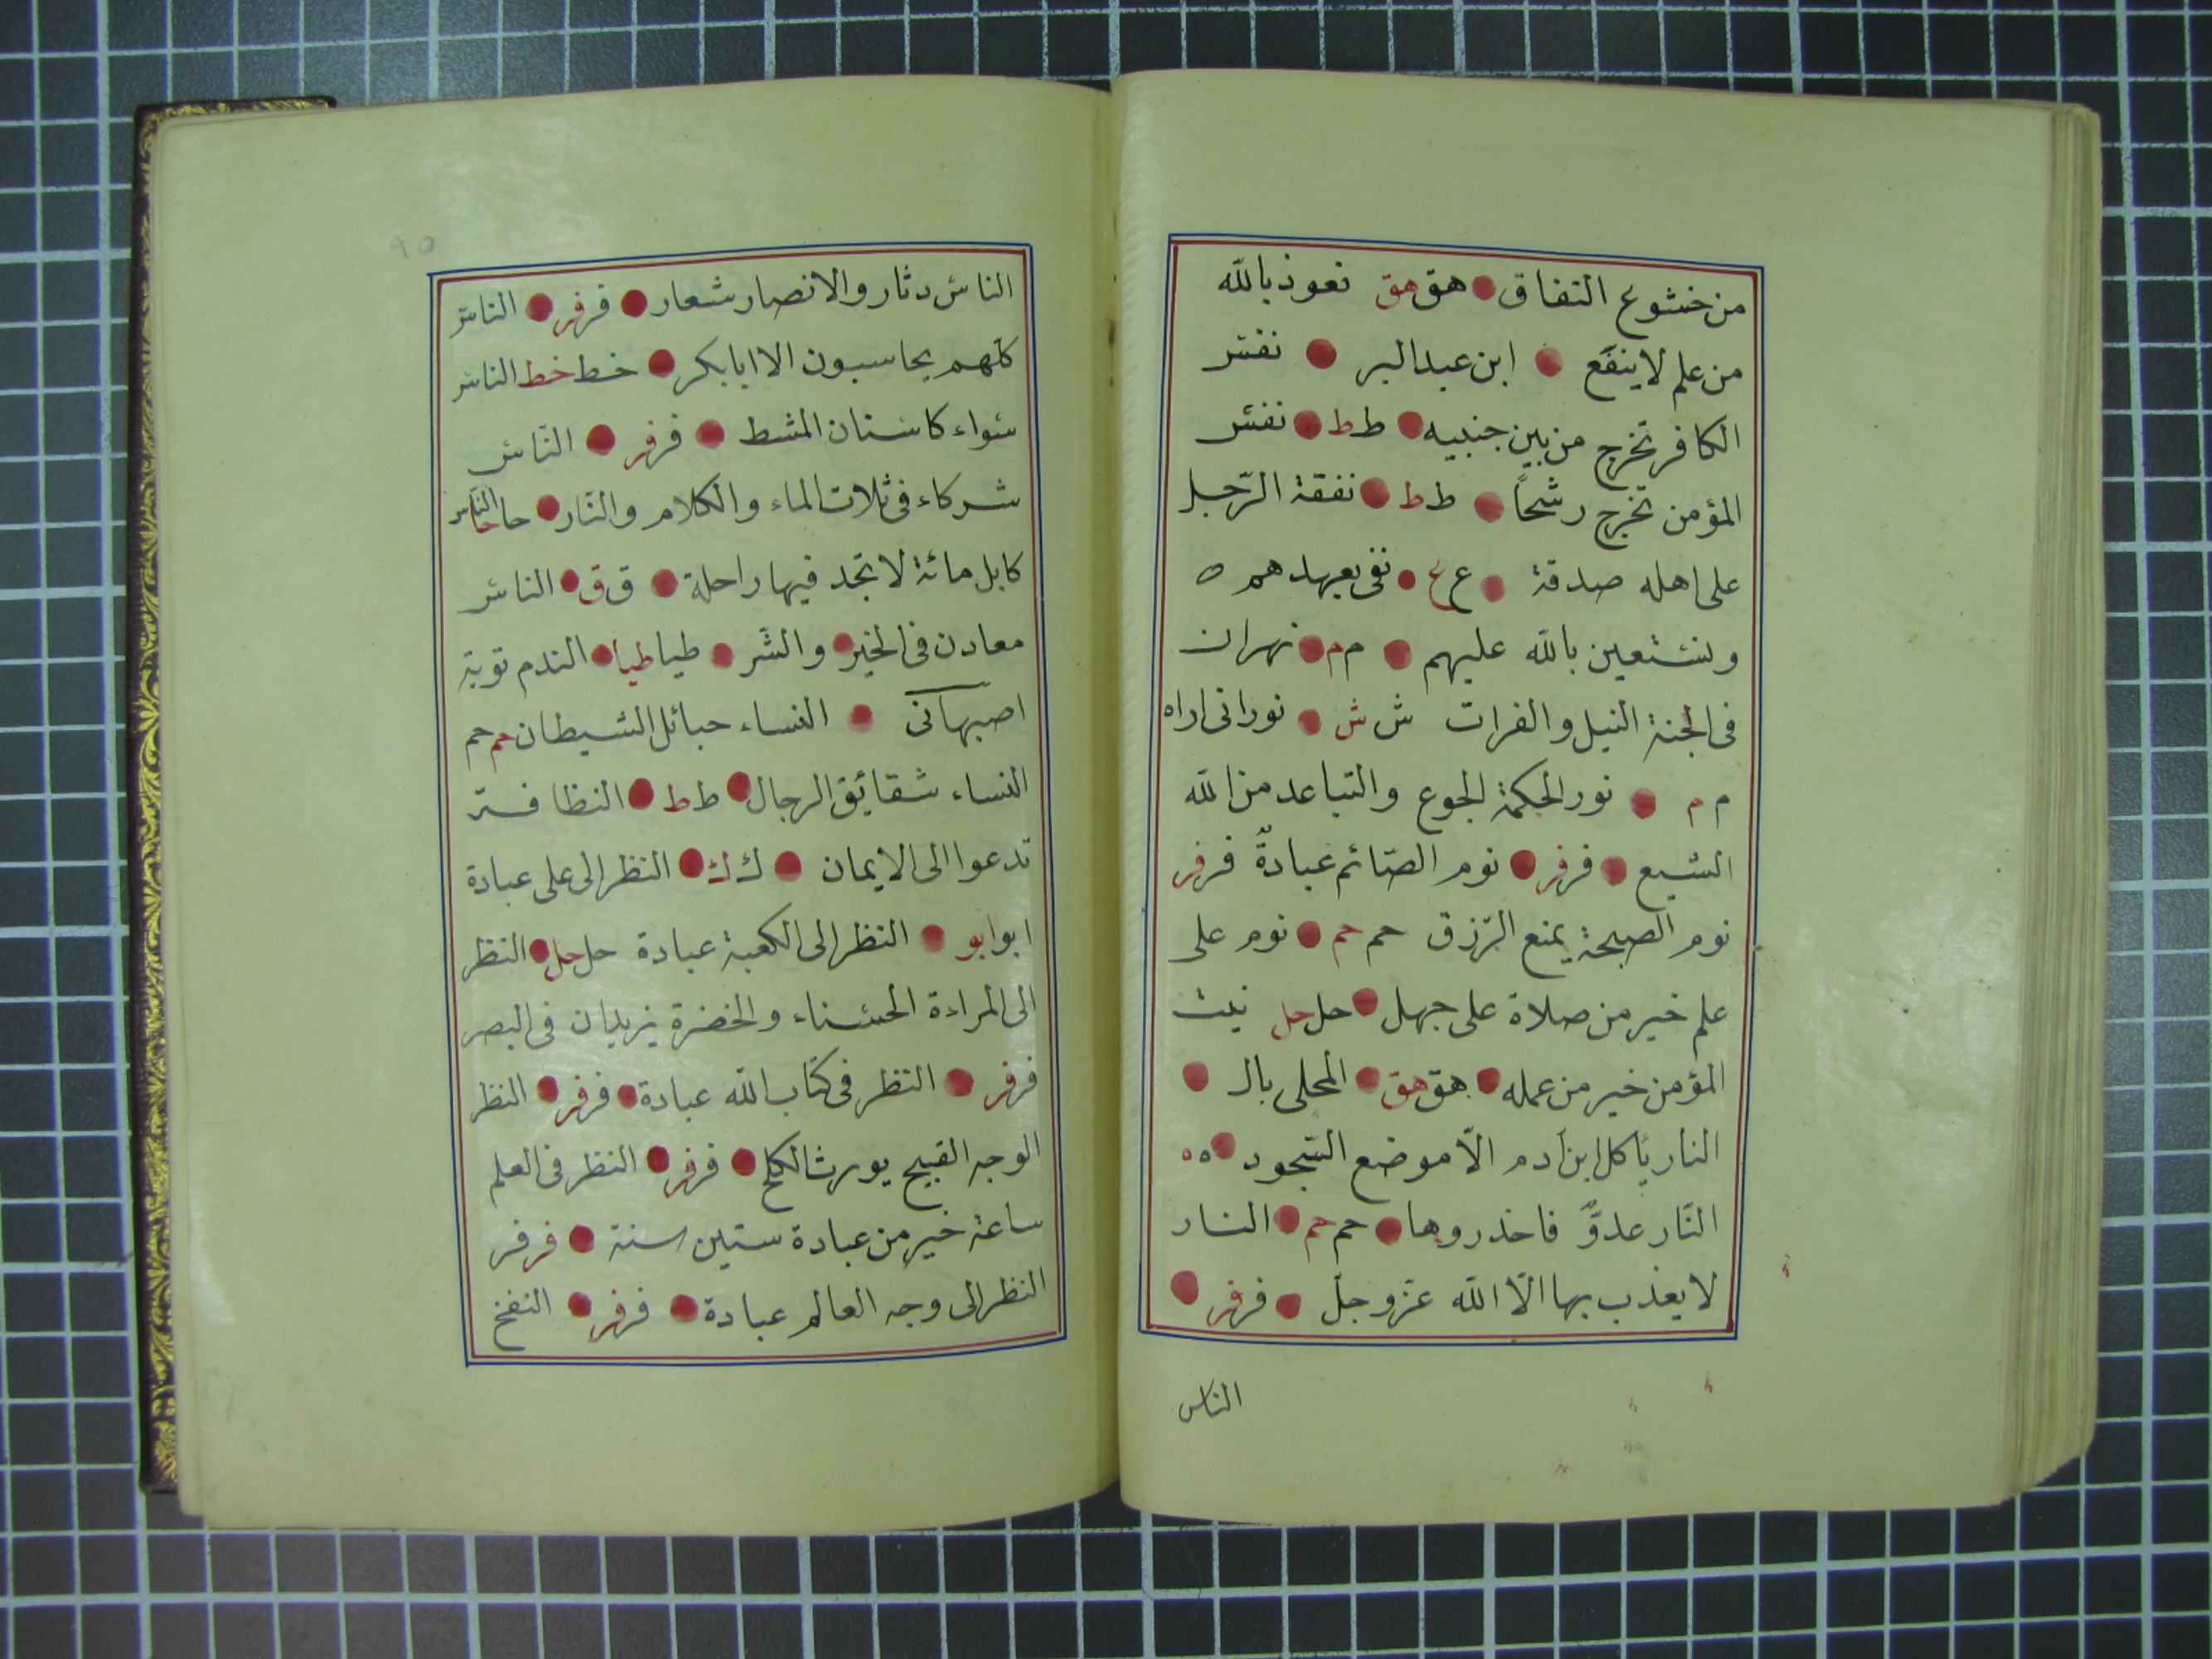 من خشوع النفاق هق هق نعوذ بالله
من علم لا ينفع ابن عبد البر نفس
الكافر تخرج من بين جنبيه ط ط نفس
المؤمن تخرج رشحاً ط ط نفقة الرّجل
على اهله صدقة ع ع نفى بعهدهم
ونستعين بالله عليهم م م نهران
فى الجنة النيل والفرات ش ش نورانى اراه
م م نور الحكمة الجوع والتباعد من الله
الشبع فر فر نوم الصّائم عبادةٌ فر فر
نوم الصبحة يمنع الرّزق حم حم نوم على
علم خير من صلاة على جهل حل حل نيت
المؤمن خير من عمله هق هق المحلى بال
النار يأكل ابن آدم الّا موضع السّجود ه ه
النّار عدوٌّ فاحذروها حم حم النار
لا يعذب بها الّا الله عزّ وجلّ فر فر
الناس
٩٥
الناس دثار والانصار شعار فر فر الناس
كلّهم يحاسبون الا ابابكر خط خط الناس
سواء كاسنان المشط فر فر النّاس
شركاء فى ثلاث الماء والكلام والنّار حا حا النّاس
كابل مائة لا تجد فيها راحلة ق ق الناس
معادن فى الخير والشّر طيا طيا الندم توبة
اصبهانى النساء حبائل الشيطان حم حم
النساء شقائق الرجال ط ط النظافة
تدعوا الى الايمان ك ك النظر الى على عبادة
ابو ابو النظر الى الكعبة عبادة حل حل النظر
الى المراءة الحسناء والخضرة يزيدان فى البصر
فر فر النظر فى كتاب الله عبادة فر فر النظر
الوجه القبيح يورث الكلح فر فر النظر فى العلم
ساعة خير من عبادة ستين سنة فر فر
النظر الى وجه العالم عبادة فر فر النفخ